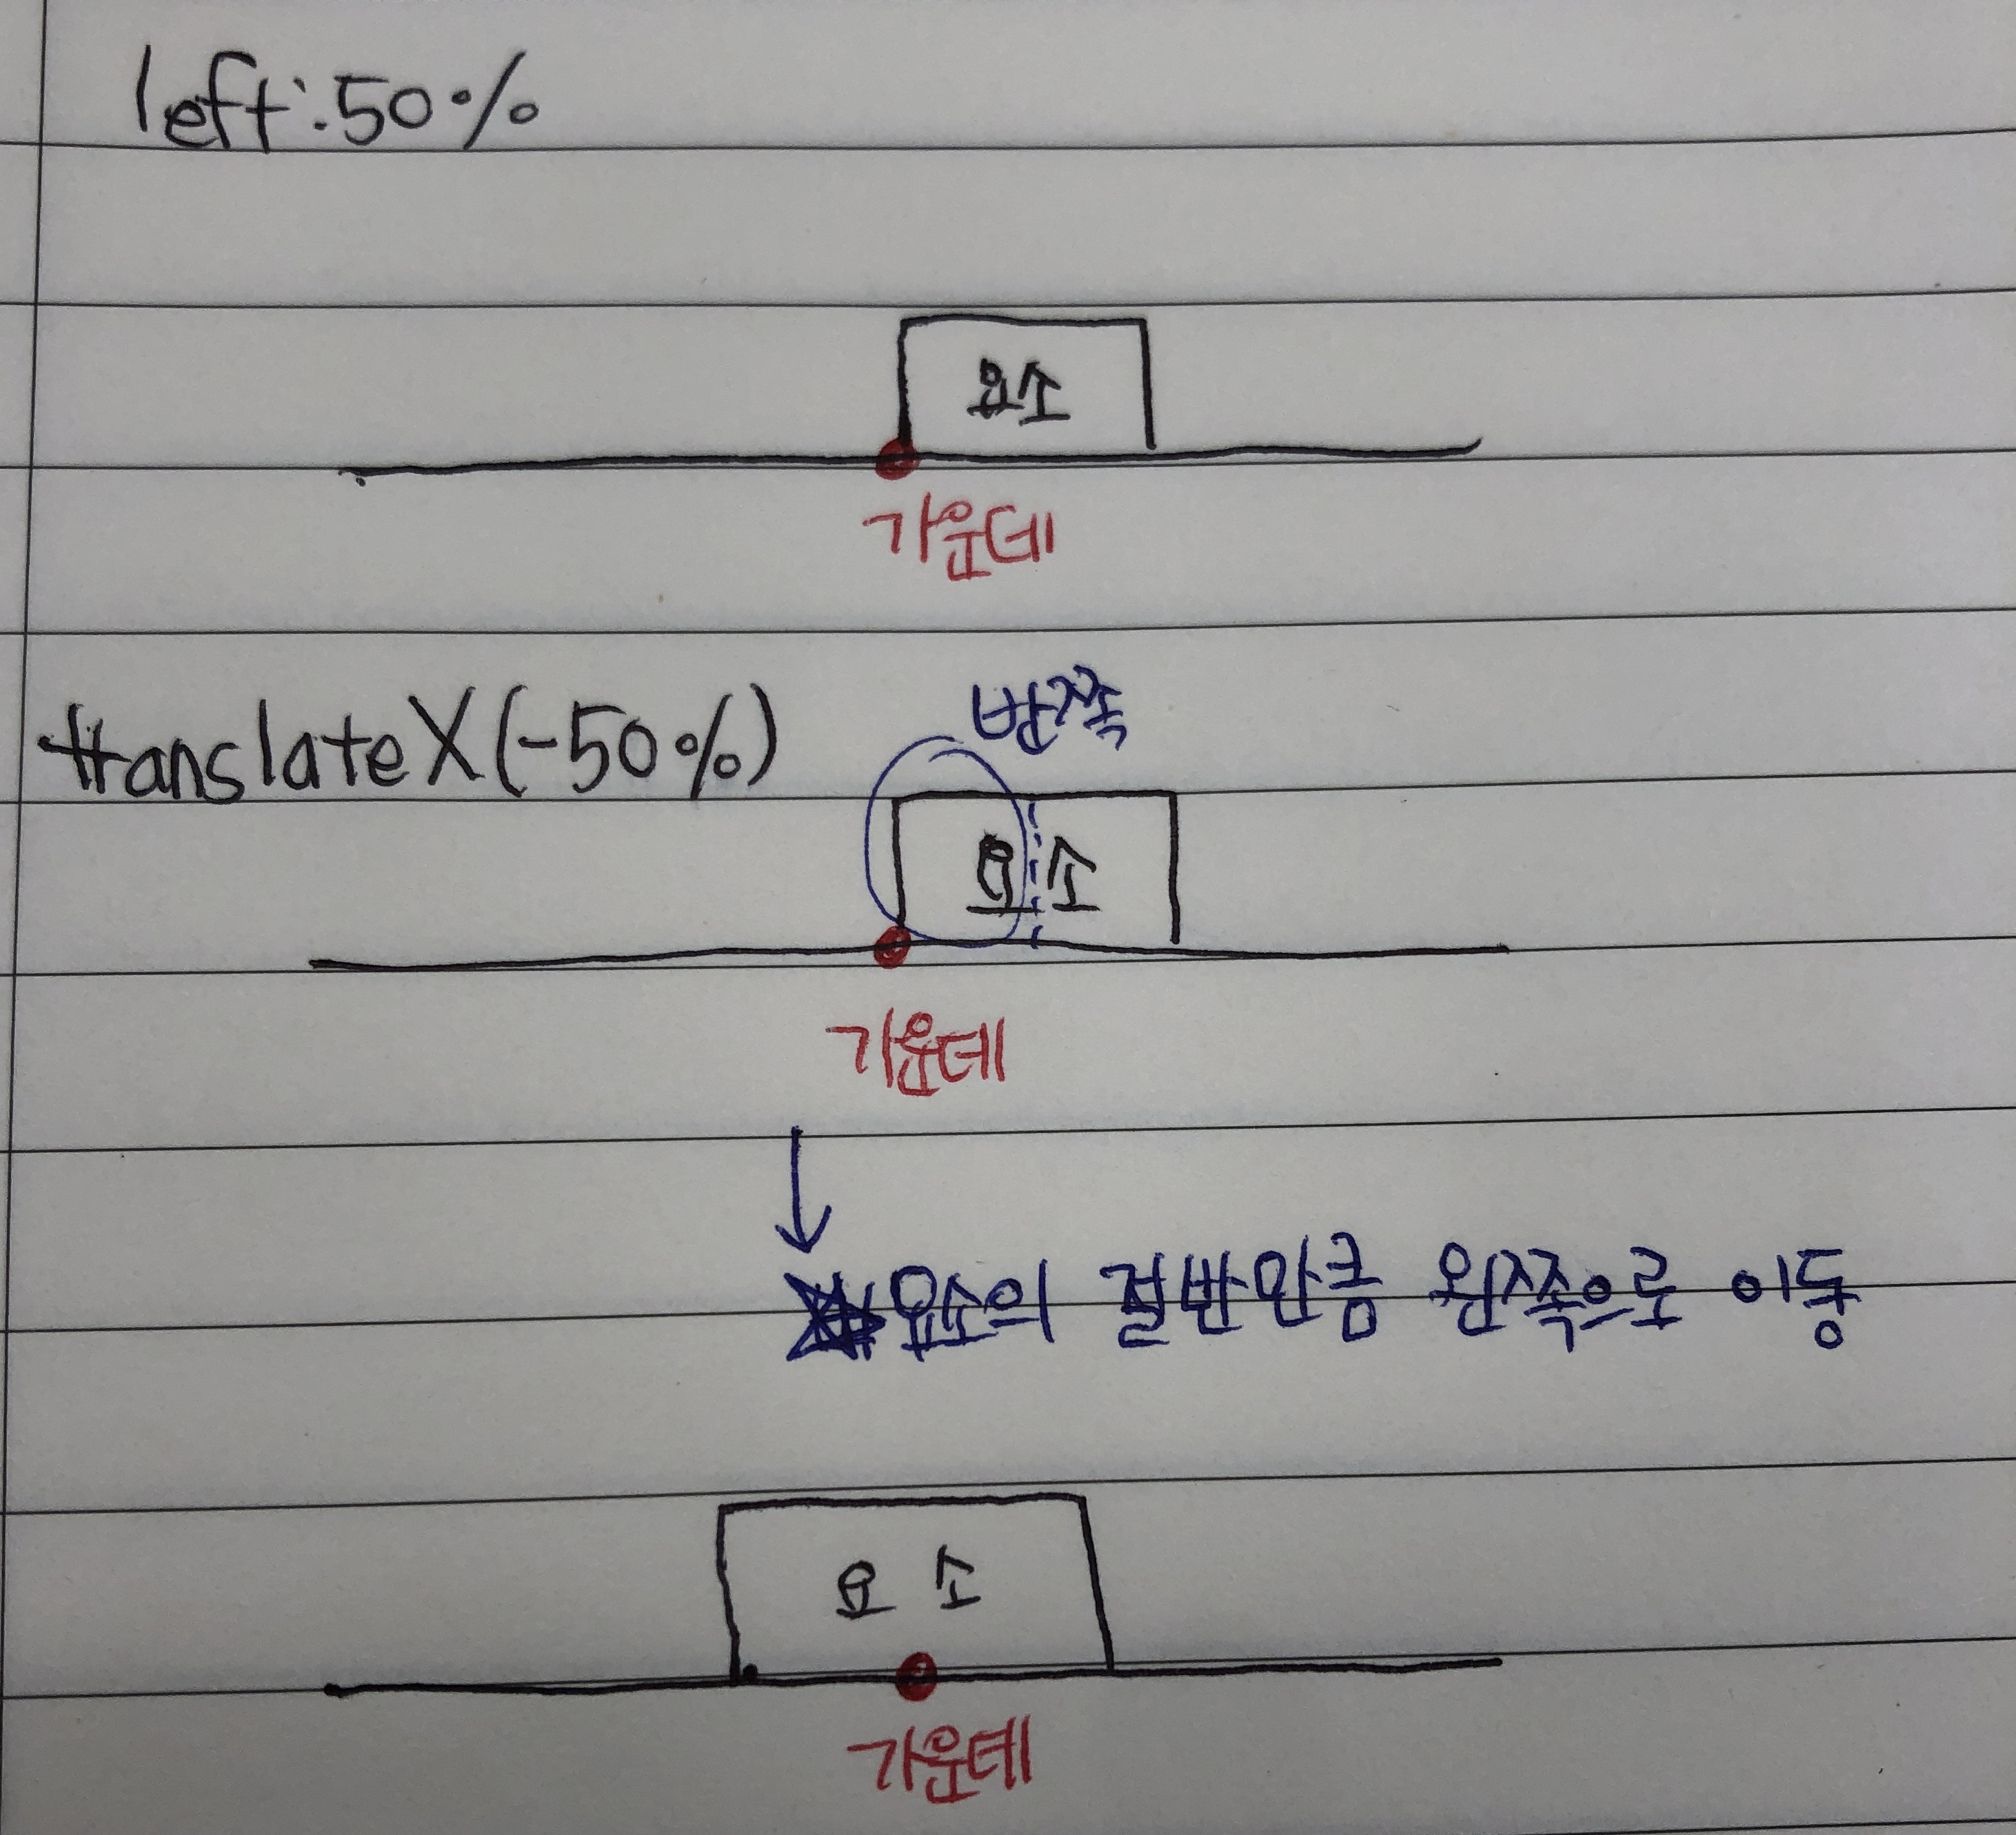 left:50%
요소
가운데
translateX(-50%)
반쪽
요소
가운데
요소의 절반만큼 왼쪽으로 이동
요소
가운데